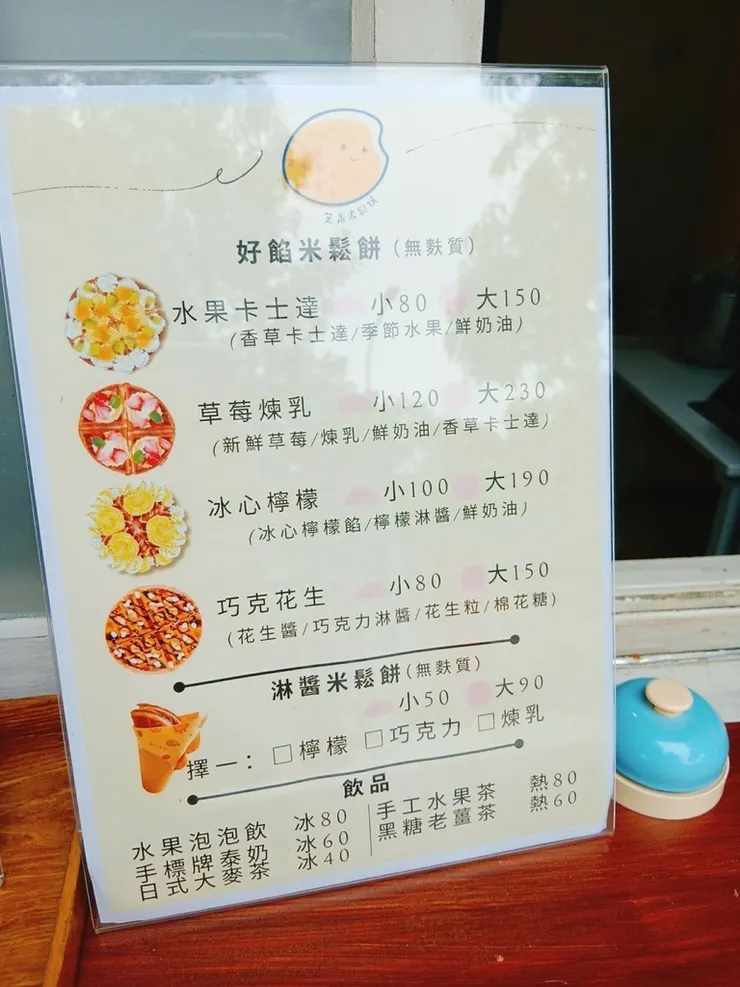 好餡米鬆餅(無麩質)
水果卡士達 小80 大150
(香草卡士達/季節水果/鮮奶油)
草莓煉乳 小120 大230
(新鮮草莓/煉乳/鮮奶油/香草卡士達)
冰心檸檬 小100 大190
(冰心檸檬餡/檸檬淋醬/鮮奶油)
巧克花生 小80 大150
(花生醬/巧克力淋醬/花生粒/棉花糖)
淋醬米鬆餅(無麩質)
小50 大90
擇一: □檸檬 □巧克力 □煉乳
飲品
水果泡泡飲 冰80
手標牌泰奶 冰60
日式大麥茶 冰40
手工水果茶 熱80
黑糖老薑茶 熱60